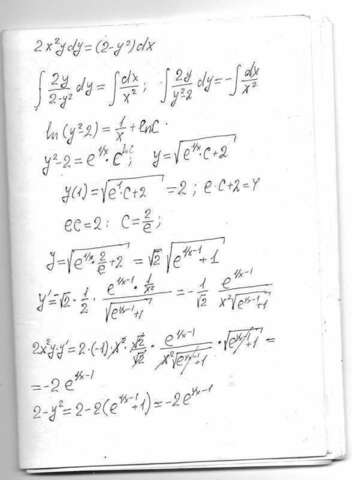 2x²ydy=(2-y²)dx
∫ 2y/(2-y²) dy = ∫ dx/x² ; ∫ 2y/(y²-2) dy = -∫ dx/x²
ln(y²-2) = 1/x + lnC.
y²-2 = e^(1/x) · e^(lnC) ; y = √(e^(1/x)·C+2)
y(1) = √(e¹·C+2) = 2 ; e·C+2=4
eC=2 : C = 2/e ;
y = √(e^(1/x)·2/e+2) = √2 √(e^(1/x-1)+1)
y' = √2 · 1/2 · (e^(1/x-1) · 1/x²)/√(e^(1/x-1)+1) = -1/√2 · e^(1/x-1)/(x²√(e^(1/x-1)+1))
2x²y·y' = 2·(-1)·x²·√2/√2 · e^(1/x-1)/(x²√(e^(1/x-1)+1)) · √(e^(1/x-1)+1) =
= -2e^(1/x-1)
2-y² = 2-2(e^(1/x-1)+1) = -2e^(1/x-1)